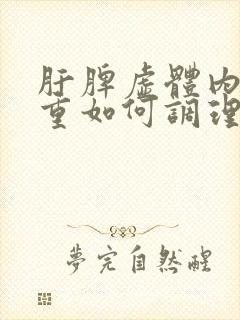 肝脾虛體內
重如何調理
夢完自然醒